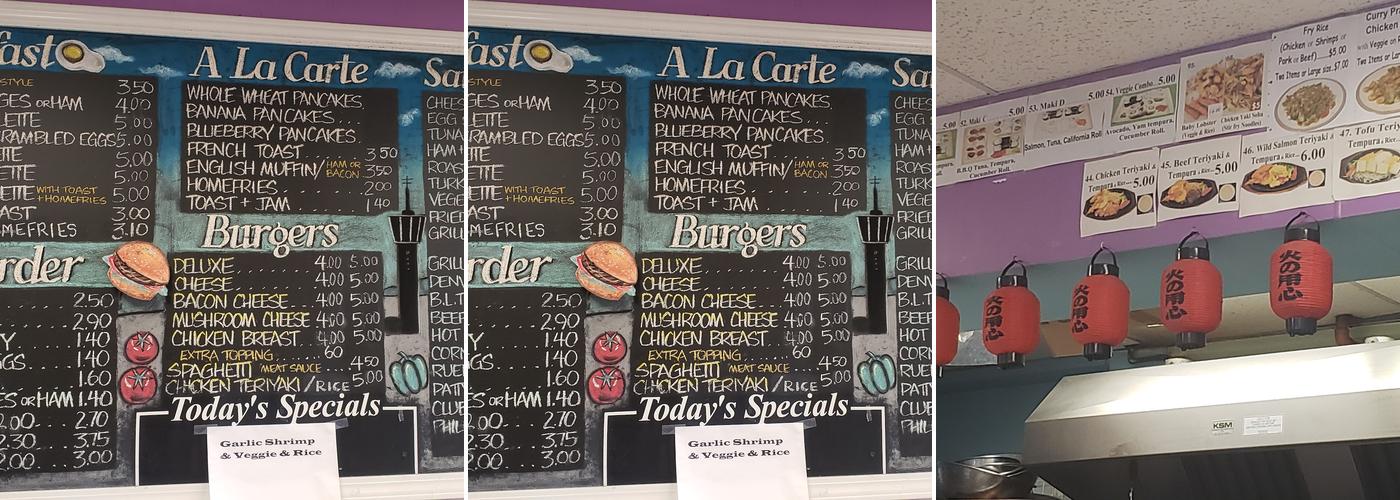 fast
A La Carte
Sa
STYLE
3.50
GES OR HAM 4.00
LETTE 5.00
RAMBLED EGGS 5.00
5.00
ETTE WITH TOAST + HOMEFRIES 5.00
AST 3.00
MEFRIES 3.10
WHOLE WHEAT PANCAKES
BANANA PANCAKES
BLUEBERRY PANCAKES
FRENCH TOAST 3.50
ENGLISH MUFFIN/ HAM OR BACON 3.50
HOMEFRIES 2.00
TOAST + JAM 1.40
CHEES
EGG
TUNA
HAM
ROAS
TURK
VEGE
FRIED
GRILL
rder
2.50
2.90
Y 1.40
GGS 1.40
1.60
ES OR HAM 1.40
2.00 2.70
2.30 3.75
2.00 3.00
Burgers
DELUXE 4.00 5.00
CHEESE 4.00 5.00
BACON CHEESE 4.00 5.00
MUSHROOM CHEESE 4.00 5.00
CHICKEN BREAST 4.00 5.00
EXTRA TOPPING 60
SPAGHETTI MEAT SAUCE 4.50
CHICKEN TERIYAKI/RICE 5.00
GRILL
DENV
B.L.T
BEEF
HOT
CORN
RUE
PATT
CLUB
PHIL
Today's Specials
Garlic Shrimp
& Veggie & Rice
fast
A La Carte
Sa
STYLE
3.50
GES OR HAM 4.00
LETTE 5.00
RAMBLED EGGS 5.00
5.00
ETTE WITH TOAST + HOMEFRIES 5.00
AST 3.00
MEFRIES 3.10
WHOLE WHEAT PANCAKES
BANANA PANCAKES
BLUEBERRY PANCAKES
FRENCH TOAST 3.50
ENGLISH MUFFIN/ HAM OR BACON 3.50
HOMEFRIES 2.00
TOAST + JAM 1.40
CHEES
EGG
TUNA
HAM
ROAS
TURK
VEGE
FRIED
GRILL
rder
2.50
2.90
Y 1.40
GGS 1.40
1.60
ES OR HAM 1.40
2.00 2.70
2.30 3.75
2.00 3.00
Burgers
DELUXE 4.00 5.00
CHEESE 4.00 5.00
BACON CHEESE 4.00 5.00
MUSHROOM CHEESE 4.00 5.00
CHICKEN BREAST 4.00 5.00
EXTRA TOPPING 60
SPAGHETTI MEAT SAUCE 4.50
CHICKEN TERIYAKI/RICE 5.00
GRILL
DENV
B.L.T
BEEF
HOT
CORN
RUE
PATT
CLUB
PHIL
Today's Specials
Garlic Shrimp
& Veggie & Rice
52. Maki C 5.00
B.B.Q Tuna, Tempura,
Cucumber Roll.
53. Maki D 5.00
Salmon, Tuna, California Roll
54. Veggie Combo 5.00
Avocado, Yam tempura,
Cucumber Roll.
Baby Lobster
(Veggie & Rice)
Chicken Yaki Soba
(Stir fry Noodles)
Fry Rice
(Chicken or Shrimps or
Pork or Beef) $5.00
Two Items or Large size $7.00
Curry
Chicken
with Veggie
Two Items or Lar
44. Chicken Teriyaki &
Tempura & Rice 5.00
45. Beef Teriyaki &
Tempura & Rice 5.00
46. Wild Salmon Teriyaki &
Tempura & Rice 6.00
47. Tofu Teriy
Tempura & Rice
火の用心
火の用心
火の用心
火の用心
KSM